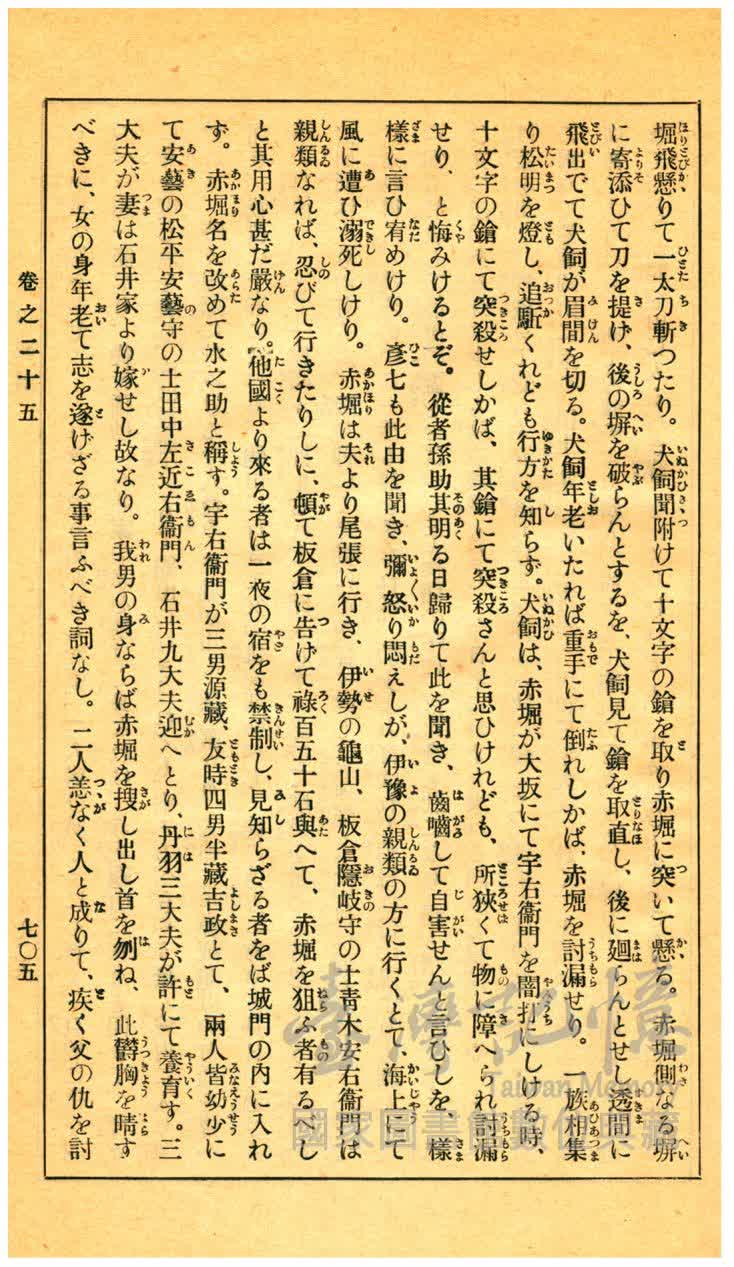 堀飛懸りて一太刀斬つたり。犬飼聞附けて十文字の鎗を取り赤堀に突いて懸る。赤堀側なる塀
に寄添ひて刀を提げ、後の塀を破らんとするを、犬飼見て鎗を取直し、後に廻らんとせし透間に
飛出でて犬飼が眉間を切る。犬飼年老いたれば重手にて倒れしかば、赤堀を討漏せり。一族相集
り松明を燈し、追駈くれども行方を知らず。犬飼は、赤堀が大坂にて宇右衞門を闇打にしける時、
十文字の鎗にて突殺せしかば、其鎗にて突殺さんと思ひけれども、所狹くて物に障へられ討漏
せり、と悔みけるとぞ。從者孫助其明る日歸りて此を聞き、齒嚙して自害せんと言ひしを、樣
樣に言ひ宥めけり。彥七も此由を聞き、彌怒り悶えしが、伊豫の親類の方に行くとて、海上にて
風に遭ひ溺死しけり。赤堀は夫より尾張に行き、伊勢の龜山、板倉隱岐守の士靑木安右衞門は
親類なれば、忍びて行きたりしに、頓て板倉に告げて祿百五十石與へて、赤堀を狙ふ者有るべし
と其用心甚だ嚴なり。他國より來る者は一夜の宿をも禁制し、見知らざる者をば城門の內に入れ
ず。赤堀名を改めて水之助と稱す。宇右衞門が三男源藏、友時四男半藏吉政とて、兩人皆幼少に
て安藝の松平安藝守の士田中左近右衞門、石井九大夫迎へとり、丹羽三大夫が許にて養育す。三
大夫が妻は石井家より嫁せし故なり。我男の身ならば赤堀を搜し出し首を刎ね、此鬱胸を晴す
べきに、女の身年老て志を遂げざる事言ふべき詞なし。二人恙なく人と成りて、疾く父の仇を討
卷之二十五
七〇五
臺灣記憶
Taiwan Memory
國家圖書館數位典藏